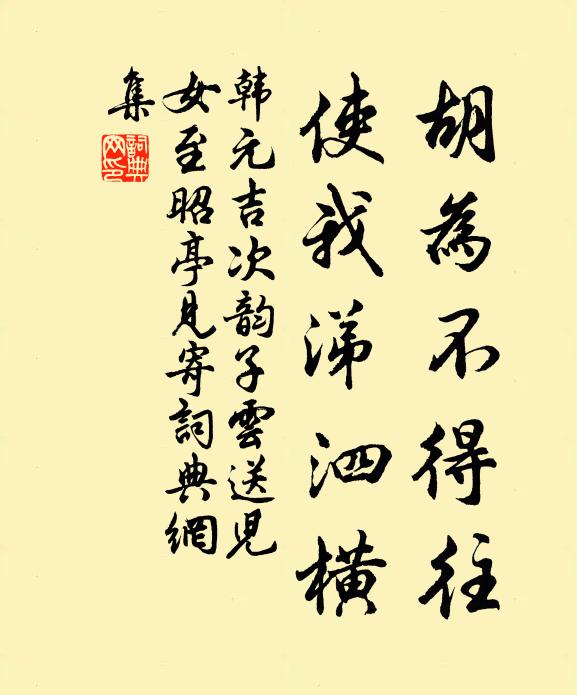 胡為不得往
使我涕泗橫
韩元吉次韵子雲送児
女至昭亭見寄詞典網
集
詞典網印